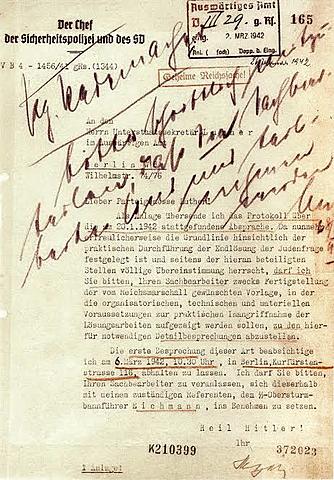 Der Chef
der Sicherheitspolizei und des SD
Auswärtiges Amt
D III 29. g. Rs.
165
2. MRZ. 1942
Anl. (fach) Dopp. d. Eing.
IV B 4 - 1456/41 gRs. (1344)
Geheime Reichssache!
1942
An den
Herrn Unterstaatssekretär
im Auswärtigen Amt
Berlin
Wilhelmstr. 74/76
Lieber Parteigenosse Luther!
Als Anlage übersende ich das Protokoll über
die am 20.1.1942 stattgefundene Absprache. Da nunmehr
erfreulicherweise die Grundlinie hinsichtlich der
praktischen Durchführung der Endlösung der Judenfrage
festgelegt ist und seitens der hieran beteiligten
Stellen völlige Übereinstimmung herrscht, darf ich
Sie bitten, Ihren Sachbearbeiter zwecks Fertigstellung
der vom Reichsmarschall gewünschten Vorlage, in der
die organisatorischen, technischen und materiellen
Voraussetzungen zur praktischen Inangriffnahme der
Lösungsarbeiten aufgezeigt werden sollen, zu den hier-
für notwendigen Detailbesprechungen abzustellen.
Die erste Besprechung dieser Art beabsichtige
ich am 6. März 1942, 10.30 Uhr, in Berlin, Kurfürsten-
strasse 116, abhalten zu lassen. Ich darf Sie bitten,
Ihren Sachbearbeiter zu veranlassen, sich dieserhalb
mit meinem zuständigen Referenten, dem ᛋᛋ-Obersturm-
bannführer Eichmann, ins Benehmen zu setzen.
Heil Hitler!
Ihr
K210399
372023
1 Anlage!